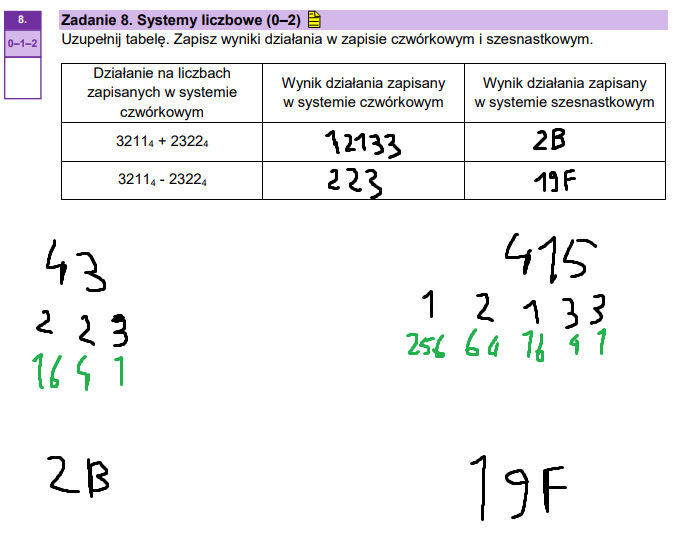 8.
0–1–2
Zadanie 8. Systemy liczbowe (0–2)
Uzupełnij tabelę. Zapisz wyniki działania w zapisie czwórkowym i szesnastkowym.
Działanie na liczbach zapisanych w systemie czwórkowym
Wynik działania zapisany w systemie czwórkowym
Wynik działania zapisany w systemie szesnastkowym
3211₄ + 2322₄ 12133 2B
3211₄ - 2322₄ 223 19F
43
2 2 3
16 4 1
2B
415
1 2 1 3 3
256 64 16 4 1
19F